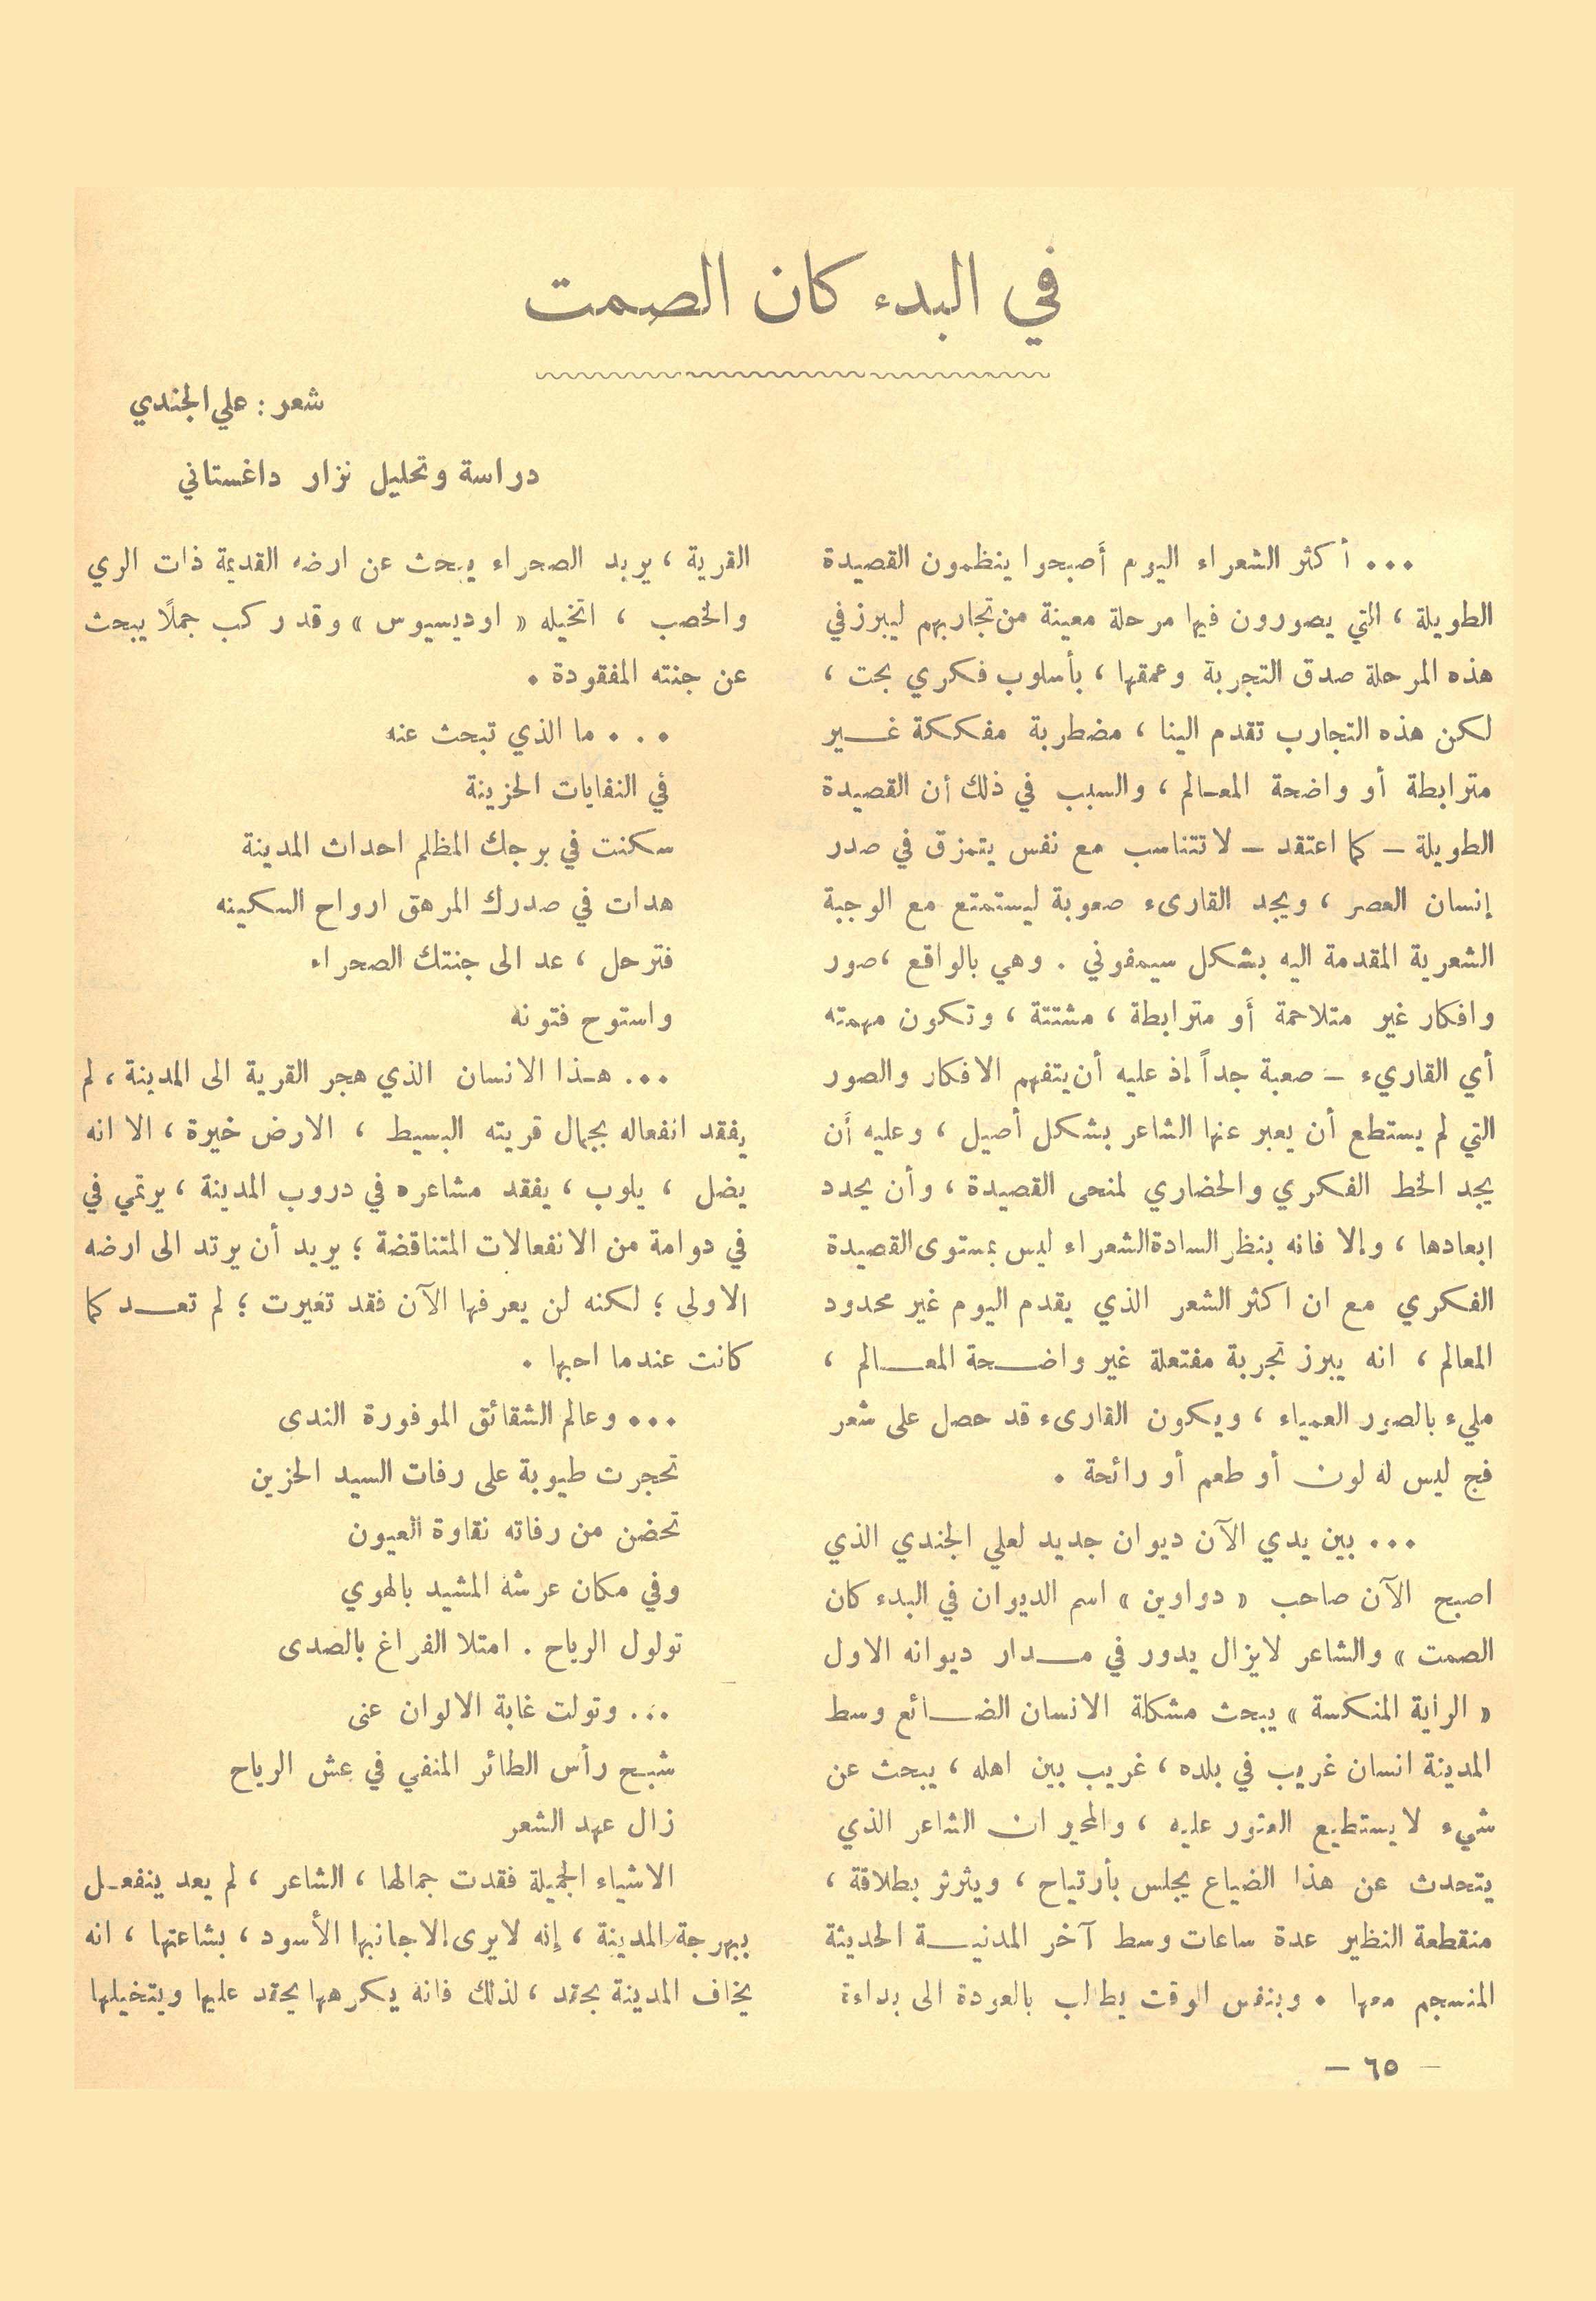 في البدء كان الصمت
شعر : علي الجندي
دراسة وتحليل نزار داغستاني
... أكثر الشعراء اليوم أصبحوا ينظمون القصيدة
الطويلة ، التي يصورون فيها مرحلة معينة من تجاربهم ليبرز في
هذه المرحلة صدق التجربة وعمقها ، بأسلوب فكري بحت ،
لكن هذه التجارب تقدم الينا ، مضطربة مفككة غير
مترابطة أو واضحة المعالم ، والسبب في ذلك أن القصيدة
الطويلة – كما اعتقد – لا تتناسب مع نفس يتمزق في صدر
إنسان العصر ، ويجد القارىء صعوبة ليستمتع مع الوجبة
الشعرية المقدمة اليه بشكل سيمفوني . وهي بالواقع ، صور
وافكار غير متلاحمة أو مترابطة ، مشتتة ، وتكون مهمته
أي القاريء – صعبة جداً إذ عليه أن يتفهم الافكار والصور
التي لم يستطع أن يعبر عنها الشاعر بشكل أصيل ، وعليه أن
يجد الخط الفكري والحضاري لمنحى القصيدة ، وأن يحدد
ابعادها ، وإلا فانه بنظر السادة الشعراء ليس بمستوى القصيدة
الفكري مع ان اكثر الشعر الذي يقدم اليوم غير محدود
المعالم ، انه يبرز تجربة مفتعلة غير واضحة المعالم ،
مليء بالصور العمياء ، ويكون القارىء قد حصل على شعر
فج ليس له لون أو طعم أو رائحة .
... بين يدي الآن ديوان جديد لعلي الجندي الذي
اصبح الآن صاحب « دواوين » اسم الديوان في البدء كان
الصمت » والشاعر لايزال يدور في مدار ديوانه الاول
« الراية المنكسة » يبحث مشكلة الانسان الضائع وسط
المدينة انسان غريب في بلده ، غريب بين اهله ، يبحث عن
شيء لا يستطيع العثور عليه ، والمحير ان الشاعر الذي
يتحدث عن هذا الضياع يجلس بأرتياح ، ويثرثر بطلاقة ،
منقطعة النظير عدة ساعات وسط آخر المدنية الحديثة
المنسجم معها . وبنفس الوقت يطالب بالعودة الى بداءة
القرية ، يريد الصحراء يبحث عن ارضه القديمة ذات الري
والخصب ، اتخيله « اوديسيوس » وقد ركب جملاً يبحث
عن جنته المفقودة .
... ما الذي تبحث عنه
في النفايات الحزينة
سكنت في برجك المظلم احداث المدينة
هدات في صدرك المرهق ارواح السكينه
فترحل ، عد الى جنتك الصحراء
واستوح فتونه
... هذا الانسان الذي هجر القرية الى المدينة ، لم
يفقد انفعاله بجمال قريته البسيط ، الارض خيرة ، الا انه
يضل ، يلوب ، يفقد مشاعره في دروب المدينة ، يرتمي في
في دوامة من الانفعالات المتناقضة ؛ يريد أن يرتد الى ارضه
الاولى ؛ لكنه لن يعرفها الآن فقد تغيرت ؛ لم تعد كما
كانت عندما احبها .
... وعالم الشقائق الموفورة الندى
تحجرت طيوبة على رفات السيد الحزين
تحضن من رفاته نقاوة العيون
وفي مكان عرشه المشيد بالهوي
تولول الرياح . امتلا الفراغ بالصدى
... وتولت غابة الالوان عنى
شبح رأس الطائر المنفي في عش الرياح
زال عهد الشعر
الاشياء الجميلة فقدت جمالها ، الشاعر ، لم يعد ينفعل
ببهرجة المدينة ، إنه لايرى إلا جانبها الأسود ، بشاعتها ، انه
يخاف المدينة بحقد ، لذلك فانه يكرهها يحقد عليها ويتخيلها
– ٦٥ –